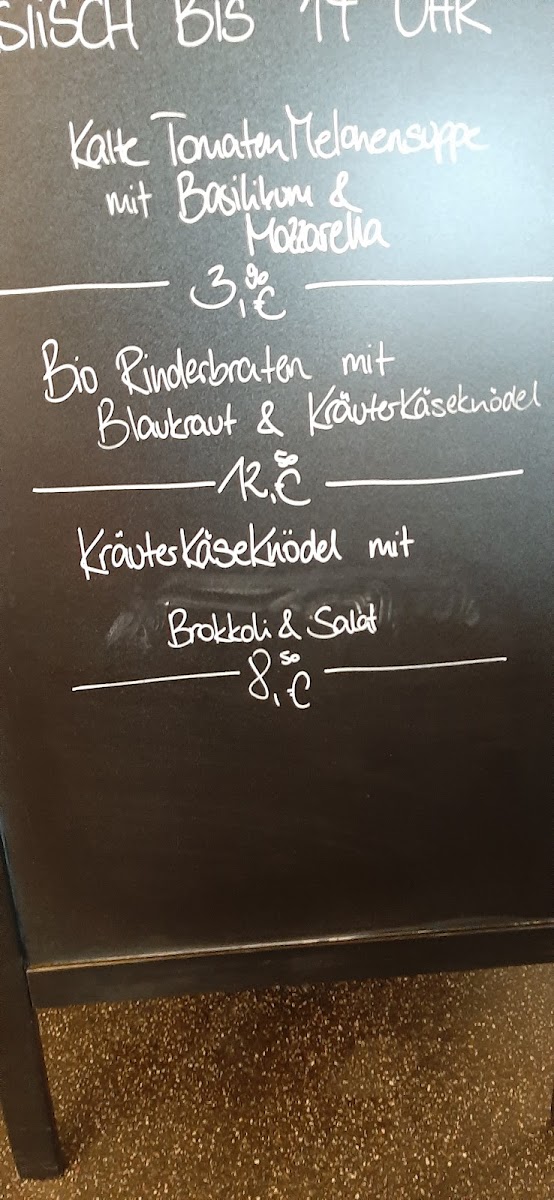 BIS 14 UHR
Kalte TomatenMelonensuppe
mit Basilikum &
Mozzarella
3,90€
Bio Rinderbraten mit
Blaukraut & KräuterKäseknödel
12,50€
KräuterKäseKnödel mit
Brokkoli & Salat
8,50€